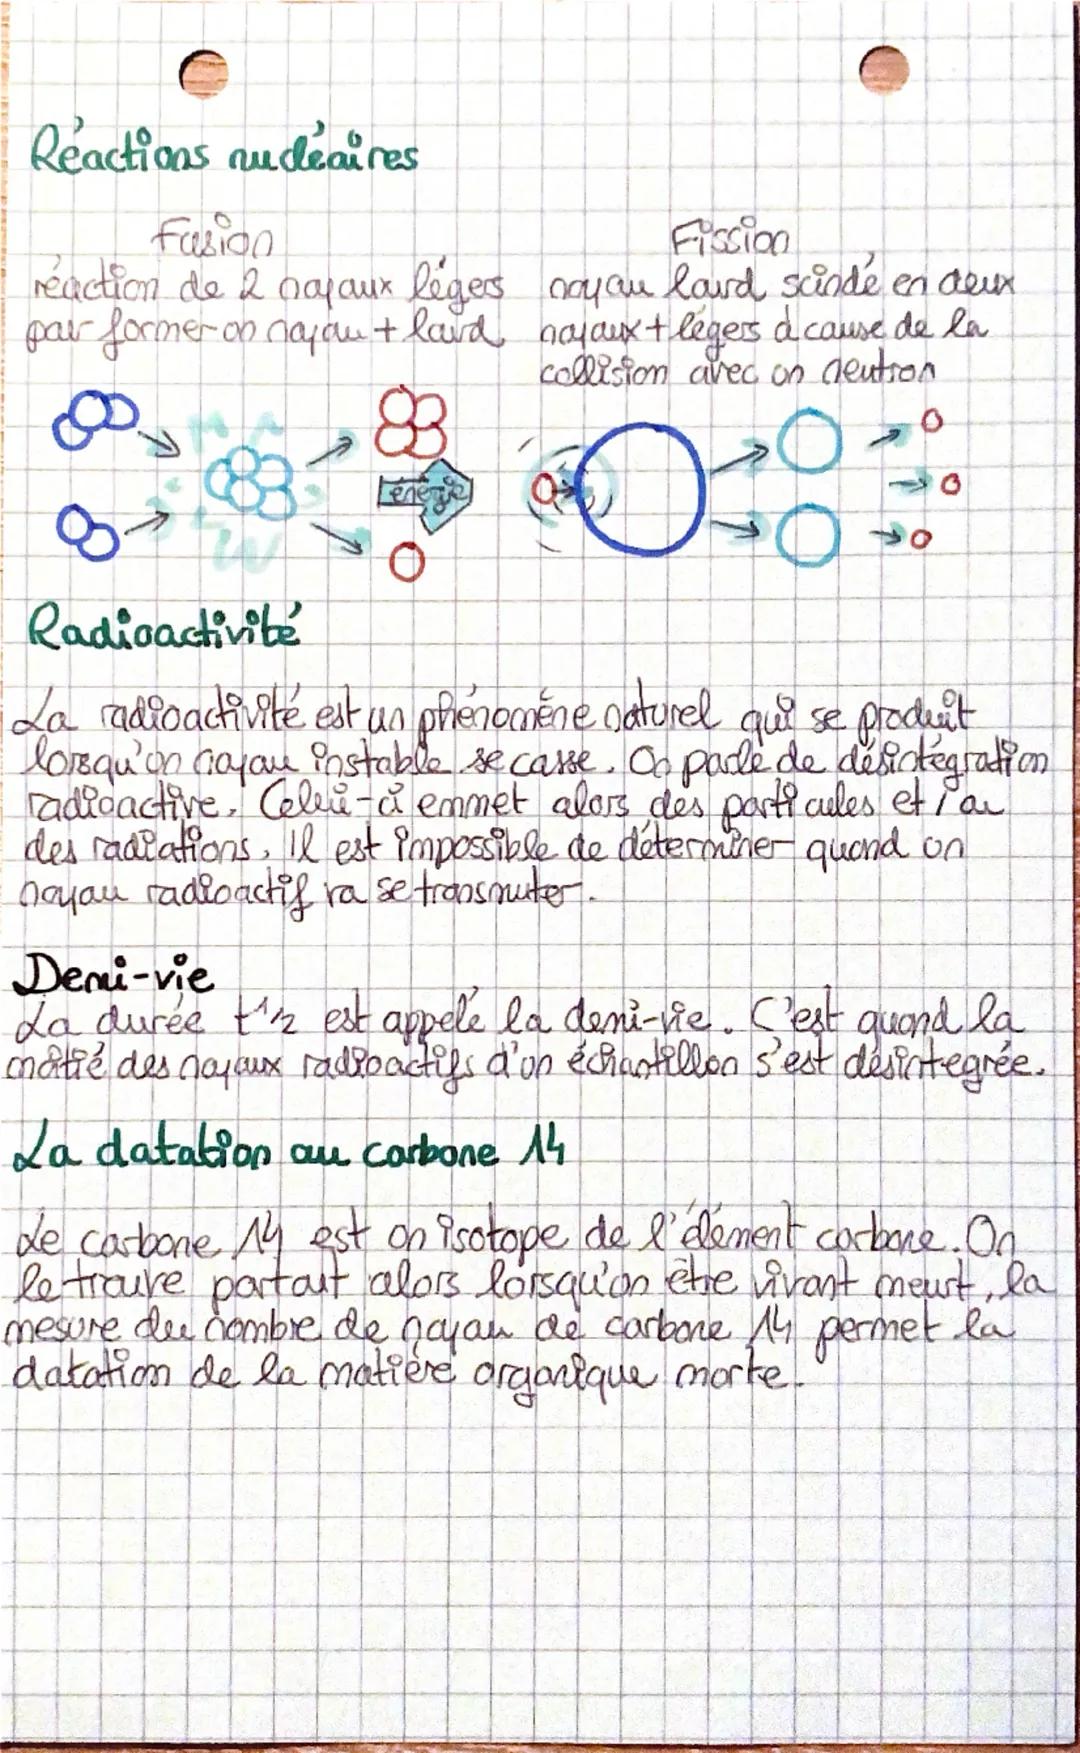 Réactions nucléaires
Fusion
réaction de 2 noyaux légers
pour former un noyau + lourd
Fission
noyau lourd scindé en deux
noyaux + légers à cause de la
collision avec un neutron
énergie
Radioactivité
La radioactivité est un phénomène naturel qui se produit
lorsqu'un noyau instable se casse. On parle de désintégration
radioactive. Celui-ci emmet alors des particules et / ou
des radiations. Il est impossible de déterminer quand un
noyau radioactif va se transmuter.
Demi-vie
La durée t 1/2 est appelé la demi-vie. C'est quand la
moitié des noyaux radioactifs d'un échantillon s'est désintegrée.
La datation au carbone 14
Le carbone 14 est un isotope de l'élément carbone. On
le trouve partout alors lorsqu'un être vivant meurt, la
mesure du nombre de noyau de carbone 14 permet la
datation de la matière organique morte.